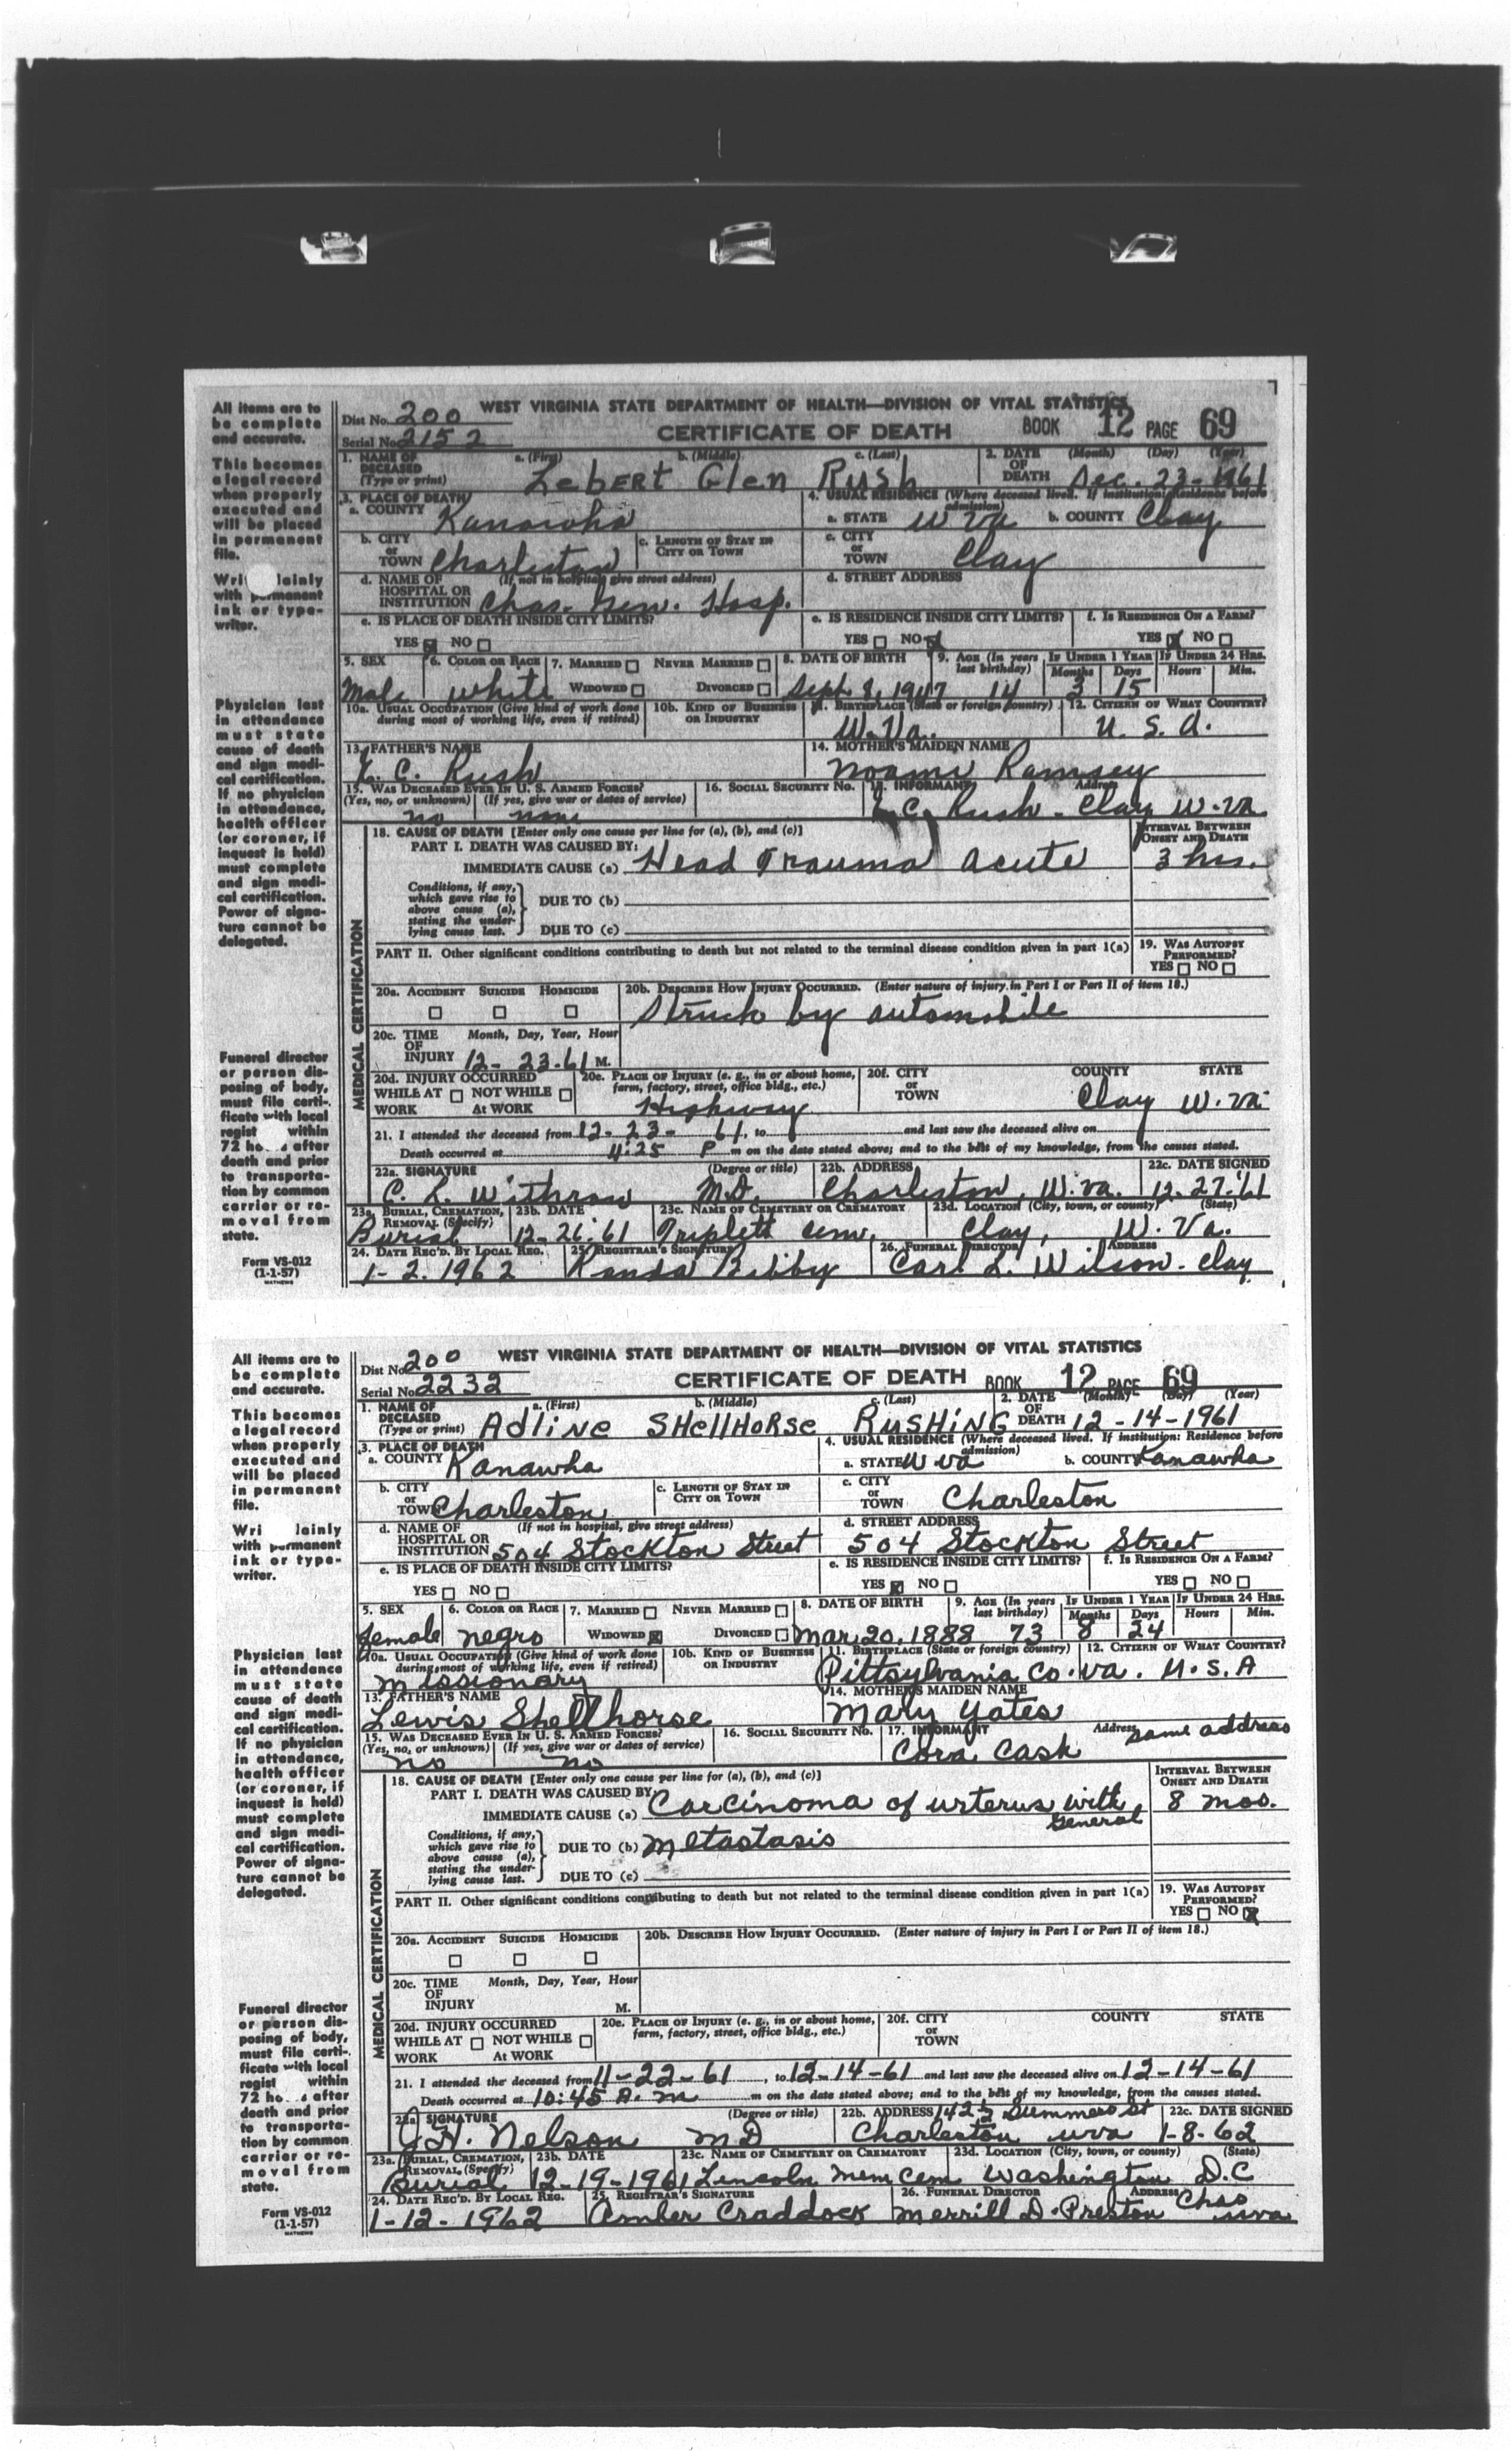 All items are to be complete and accurate.
This becomes a legal record when properly executed and will be placed in permanent file.
Wri lainly with permanent ink or typewriter.
Physician last in attendance must state cause of death and sign medical certification. If no physician in attendance, health officer (or coroner, if inquest is held) must complete and sign medical certification. Power of signature cannot be delegated.
Funeral director or person disposing of body, must file certificate with local regist within 72 ho s after death and prior to transportation by common carrier or removal from state.
Form VS-012
(1-1-57)
MATHEWS
Dist No. 200 WEST VIRGINIA STATE DEPARTMENT OF HEALTH—DIVISION OF VITAL STATISTICS
Serial No. 2152 CERTIFICATE OF DEATH BOOK 12 PAGE 69
1. NAME OF DECEASED (Type or print) a. (First) b. (Middle) c. (Last) Lebert Glen Rush 2. DATE OF DEATH (Month) (Day) (Year) Dec. 23-1961
3. PLACE OF DEATH a. COUNTY Kanawha 4. USUAL RESIDENCE (Where deceased lived. If institution: Residence before admission) a. STATE W Va b. COUNTY Clay
b. CITY or TOWN Charleston c. LENGTH OF STAY IN CITY OR TOWN c. CITY or TOWN Clay
d. NAME OF HOSPITAL OR INSTITUTION (If not in hospital, give street address) Chas. Gen. Hosp. d. STREET ADDRESS
e. IS PLACE OF DEATH INSIDE CITY LIMITS? YES NO e. IS RESIDENCE INSIDE CITY LIMITS? YES NO f. IS RESIDENCE ON A FARM? YES NO
5. SEX Male 6. COLOR OR RACE white 7. MARRIED NEVER MARRIED WIDOWED DIVORCED 8. DATE OF BIRTH Sept 8, 1947 9. AGE (In years last birthday) 14 IF UNDER 1 YEAR Months 3 Days 15 IF UNDER 24 HRS. Hours Min.
10a. USUAL OCCUPATION (Give kind of work done during most of working life, even if retired) 10b. KIND OF BUSINESS OR INDUSTRY 11. BIRTHPLACE (State or foreign country) W. Va. 12. CITIZEN OF WHAT COUNTRY? U. S. A.
13. FATHER'S NAME L. C. Rush 14. MOTHER'S MAIDEN NAME Noami Ramsey
15. WAS DECEASED EVER IN U. S. ARMED FORCES? (Yes, no, or unknown) (If yes, give war or dates of service) no none 16. SOCIAL SECURITY NO. 17. INFORMANT Address L. C. Rush - Clay W. Va
MEDICAL CERTIFICATION
18. CAUSE OF DEATH [Enter only one cause per line for (a), (b), and (c)] INTERVAL BETWEEN ONSET AND DEATH
PART I. DEATH WAS CAUSED BY:
IMMEDIATE CAUSE (a) Head Trauma acute 3 hrs.
Conditions, if any, which gave rise to above cause (a), stating the underlying cause last. DUE TO (b)
DUE TO (c)
PART II. Other significant conditions contributing to death but not related to the terminal disease condition given in part 1(a) 19. WAS AUTOPSY PERFORMED? YES NO
20a. ACCIDENT SUICIDE HOMICIDE 20b. DESCRIBE HOW INJURY OCCURRED. (Enter nature of injury in Part I or Part II of item 18.) Struck by automobile
20c. TIME OF INJURY Month, Day, Year, Hour 12-23-61 M.
20d. INJURY OCCURRED WHILE AT WORK NOT WHILE AT WORK 20e. PLACE OF INJURY (e. g., in or about home, farm, factory, street, office bldg., etc.) Highway 20f. CITY or TOWN COUNTY STATE Clay W. Va
21. I attended the deceased from 12-23-61, to and last saw the deceased alive on
Death occurred at 4:25 P m on the date stated above; and to the best of my knowledge, from the causes stated.
22a. SIGNATURE (Degree or title) C. L. Withrow M.D. 22b. ADDRESS Charleston, W. Va. 22c. DATE SIGNED 12-27-61
23a. BURIAL, CREMATION, REMOVAL (Specify) Burial 23b. DATE 12-26-61 23c. NAME OF CEMETERY OR CREMATORY Triplett Cem. 23d. LOCATION (City, town, or county) (State) Clay, W. Va.
24. DATE REC'D. BY LOCAL REG. 1-2-1962 25. REGISTRAR'S SIGNATURE Randa Bibby 26. FUNERAL DIRECTOR ADDRESS Carl L. Wilson - Clay
All items are to be complete and accurate.
This becomes a legal record when properly executed and will be placed in permanent file.
Wri lainly with permanent ink or typewriter.
Physician last in attendance must state cause of death and sign medical certification. If no physician in attendance, health officer (or coroner, if inquest is held) must complete and sign medical certification. Power of signature cannot be delegated.
Funeral director or person disposing of body, must file certificate with local regist within 72 ho s after death and prior to transportation by common carrier or removal from state.
Form VS-012
(1-1-57)
MATHEWS
Dist No. 200 WEST VIRGINIA STATE DEPARTMENT OF HEALTH—DIVISION OF VITAL STATISTICS
Serial No. 2232 CERTIFICATE OF DEATH BOOK 12 PAGE 69
1. NAME OF DECEASED (Type or print) a. (First) b. (Middle) c. (Last) Adline SHellHorse RUSHING 2. DATE OF DEATH (Month) (Day) (Year) 12-14-1961
3. PLACE OF DEATH a. COUNTY Kanawha 4. USUAL RESIDENCE (Where deceased lived. If institution: Residence before admission) a. STATE W Va b. COUNTY Kanawha
b. CITY or TOWN Charleston c. LENGTH OF STAY IN CITY OR TOWN c. CITY or TOWN Charleston
d. NAME OF HOSPITAL OR INSTITUTION (If not in hospital, give street address) 504 Stockton Street d. STREET ADDRESS 504 Stockton Street
e. IS PLACE OF DEATH INSIDE CITY LIMITS? YES NO e. IS RESIDENCE INSIDE CITY LIMITS? YES NO f. IS RESIDENCE ON A FARM? YES NO
5. SEX female 6. COLOR OR RACE negro 7. MARRIED NEVER MARRIED WIDOWED DIVORCED 8. DATE OF BIRTH Mar. 20, 1888 9. AGE (In years last birthday) 73 IF UNDER 1 YEAR Months 8 Days 24 IF UNDER 24 HRS. Hours Min.
10a. USUAL OCCUPATION (Give kind of work done during most of working life, even if retired) missionary 10b. KIND OF BUSINESS OR INDUSTRY 11. BIRTHPLACE (State or foreign country) Pittsylvania Co. Va. 12. CITIZEN OF WHAT COUNTRY? U.S.A
13. FATHER'S NAME Lewis Shellhorse 14. MOTHER'S MAIDEN NAME Mary Yates
15. WAS DECEASED EVER IN U. S. ARMED FORCES? (Yes, no, or unknown) (If yes, give war or dates of service) no no 16. SOCIAL SECURITY NO. 17. INFORMANT Cora Cash Address same address
MEDICAL CERTIFICATION
18. CAUSE OF DEATH [Enter only one cause per line for (a), (b), and (c)] INTERVAL BETWEEN ONSET AND DEATH
PART I. DEATH WAS CAUSED BY:
IMMEDIATE CAUSE (a) Carcinoma of urterus with General 8 mos.
Conditions, if any, which gave rise to above cause (a), stating the underlying cause last. DUE TO (b) metastasis
DUE TO (c)
PART II. Other significant conditions contributing to death but not related to the terminal disease condition given in part 1(a) 19. WAS AUTOPSY PERFORMED? YES NO
20a. ACCIDENT SUICIDE HOMICIDE 20b. DESCRIBE HOW INJURY OCCURRED. (Enter nature of injury in Part I or Part II of item 18.)
20c. TIME OF INJURY Month, Day, Year, Hour M.
20d. INJURY OCCURRED WHILE AT WORK NOT WHILE AT WORK 20e. PLACE OF INJURY (e. g., in or about home, farm, factory, street, office bldg., etc.) 20f. CITY or TOWN COUNTY STATE
21. I attended the deceased from 11-22-61, to 12-14-61 and last saw the deceased alive on 12-14-61
Death occurred at 10:45 A. m m on the date stated above; and to the best of my knowledge, from the causes stated.
22a. SIGNATURE (Degree or title) J. H. Nelson MD 22b. ADDRESS 142½ Summers St Charleston W Va 22c. DATE SIGNED 1-8-62
23a. BURIAL, CREMATION, REMOVAL (Specify) Burial 23b. DATE 12-19-1961 23c. NAME OF CEMETERY OR CREMATORY Lincoln Mem Cem 23d. LOCATION (City, town, or county) (State) Washington D.C
24. DATE REC'D. BY LOCAL REG. 1-12-1962 25. REGISTRAR'S SIGNATURE Amber Craddock 26. FUNERAL DIRECTOR ADDRESS Merrill D. Preston Chas W Va